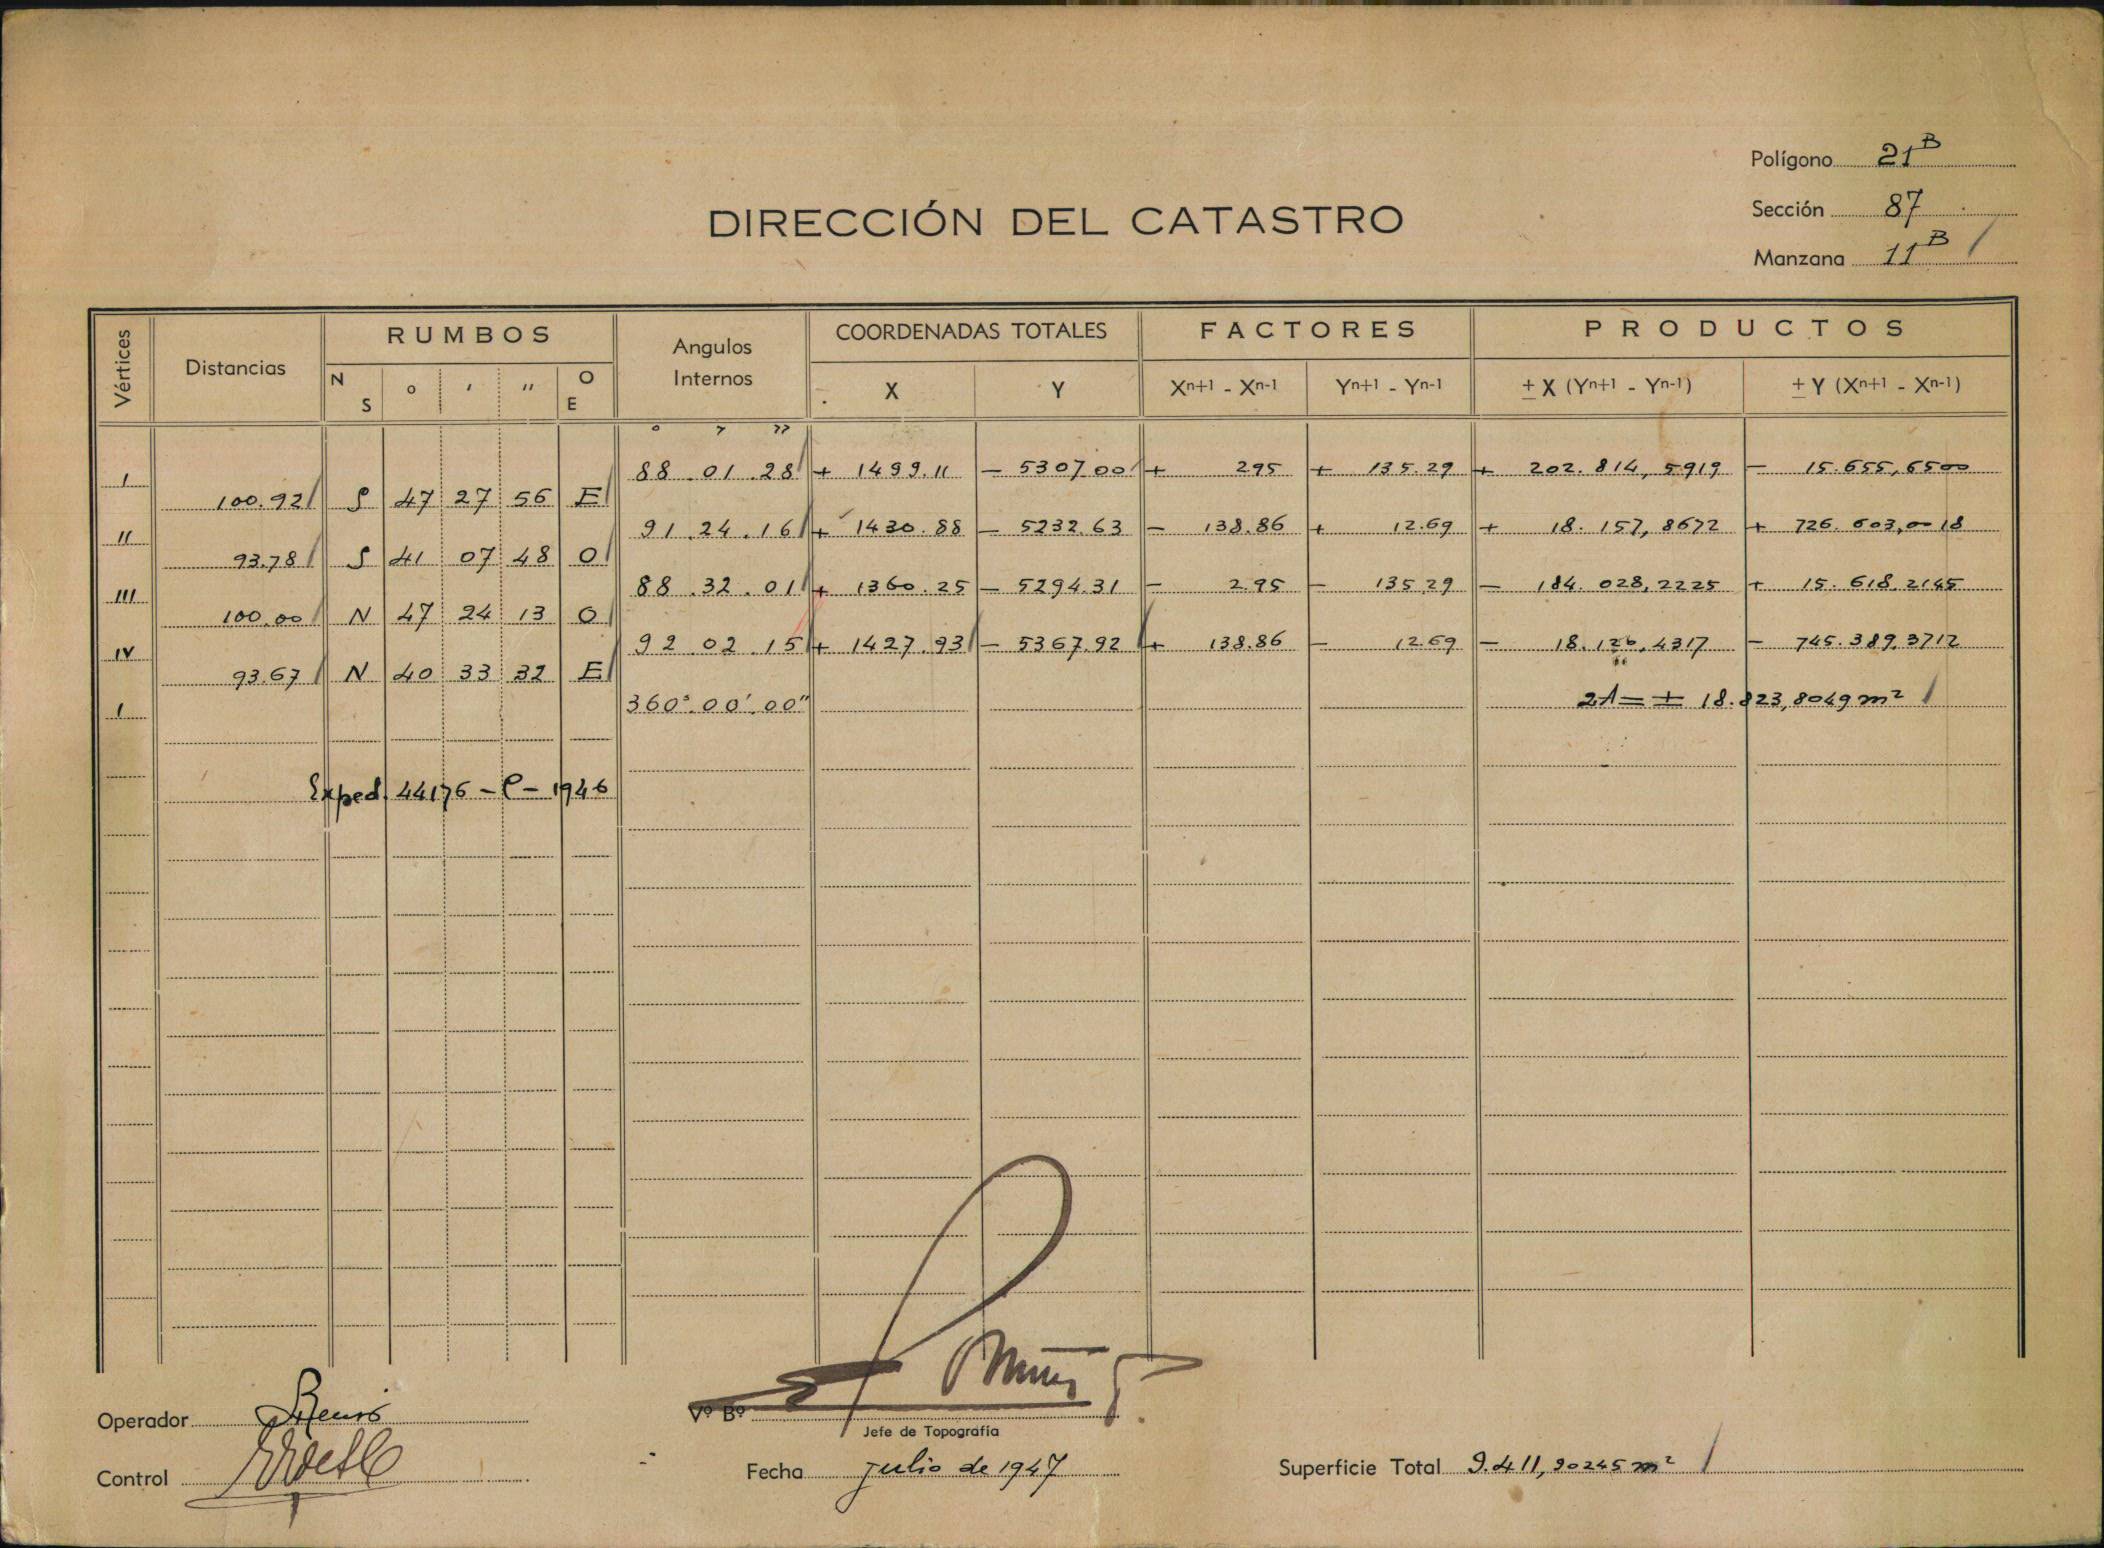 Polígono 21B
Sección 87
DIRECCIÓN DEL CATASTRO
Manzana 11B
Vértices Distancias RUMBOS Angulos Internos COORDENADAS TOTALES FACTORES PRODUCTOS
N S o ' " O E X Y Xn+1 - Xn-1 Yn+1 - Yn-1 ± X (Yn+1 - Yn-1) ± Y (Xn+1 - Xn-1)
° ' "
I 88 . 01 . 28 + 1499.11 - 5307.00 + 295 + 135.29 + 202.814,5919 - 15.655,6500
100.92 S 47 27 56 E
II 91 . 24 . 16 + 1430.88 - 5232.63 - 138.86 + 12.69 + 18.157,8672 + 726.603,0018
93.78 S 41 07 48 O
III 88 . 32 . 01 + 1360.25 - 5294.31 - 2.95 - 135.29 - 184.028,2225 + 15.618,2145
100.00 N 47 24 13 O
IV 92 . 02 . 15 + 1427.93 - 5367.92 + 138.86 - 12.69 - 18.120,4317 - 745.389,3712
93.67 N 40 33 32 E
I 360° 00' 00" 2A = ± 18.823,8049 m²
Exped. 44176 - C - 1946
Operador
Vº Bº
Jefe de Topografía
Control
Fecha julio de 1947
Superficie Total 9.411,90245 m²